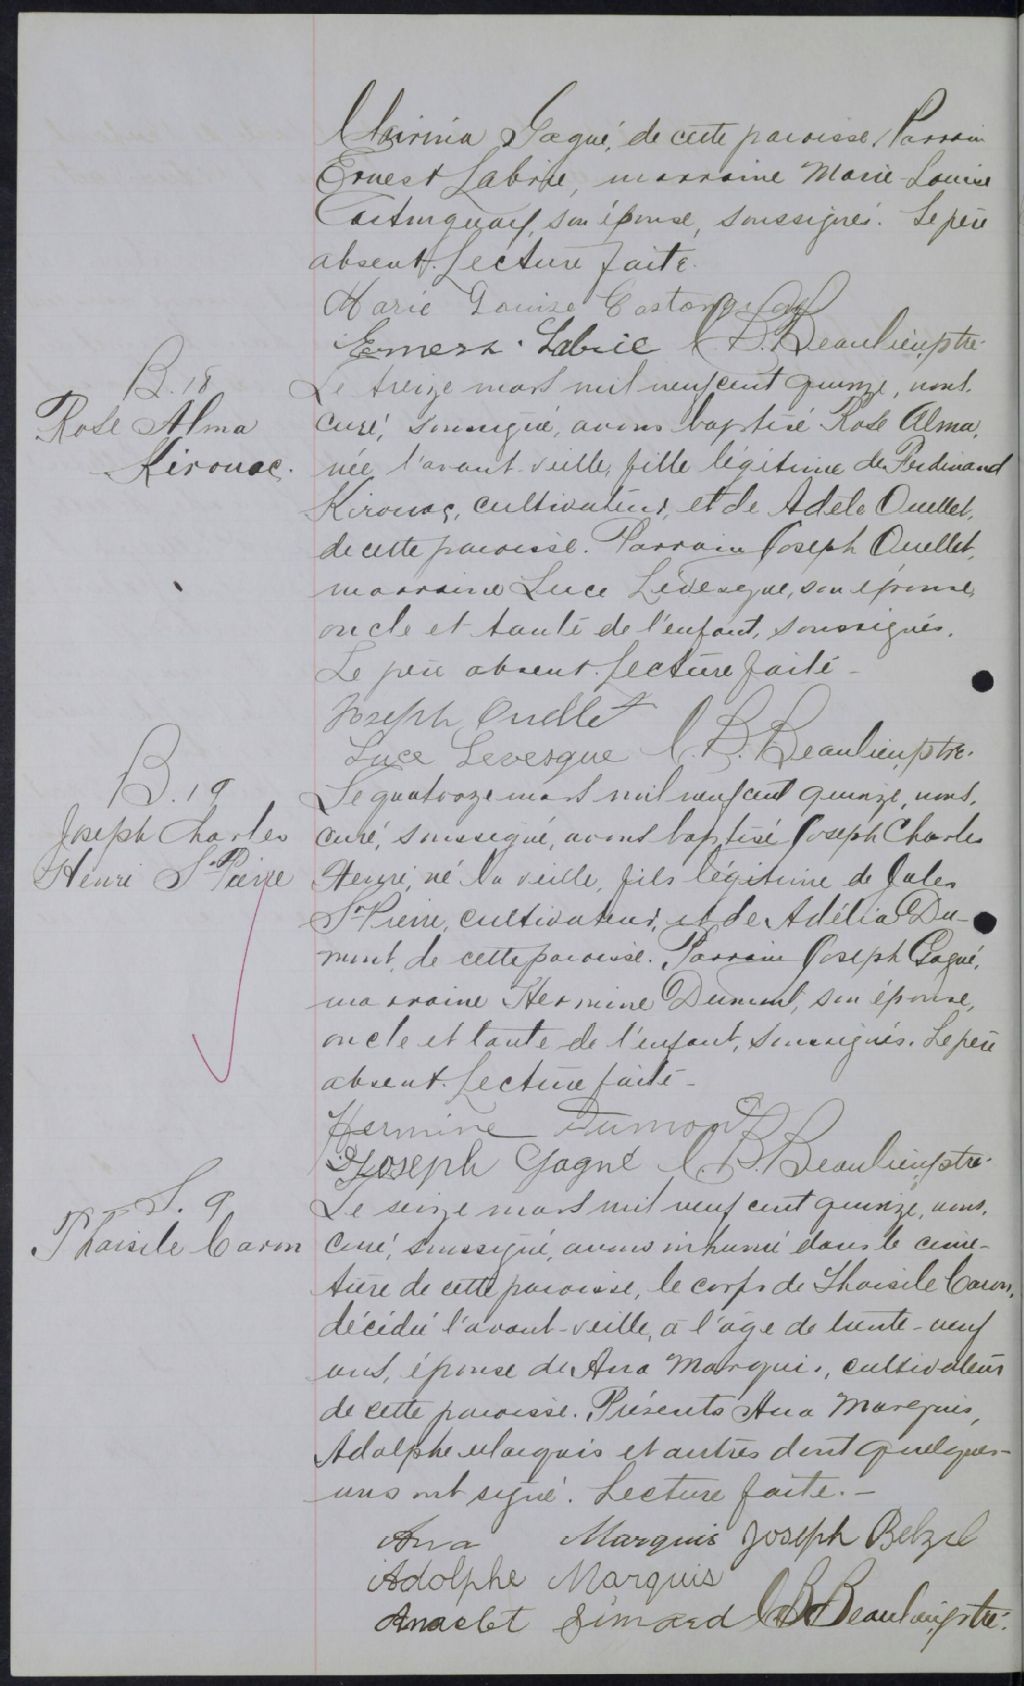 Gagné, de cette paroisse. Parrain
Ernest Labrie, marraine Marie-Louise
Castonguay, son épouse, soussignés. Le père
absent. Lecture faite.
Marie Louise Castonguay
Ernest Labrie C. B. Beaulieu, ptre.
B. 18
Rose Alma
Kirouac.
Le treize mars mil neuf cent quinze, nous,
curé, soussigné, avons baptisé Rose Alma,
née l'avant-veille, fille légitime de Ferdinand
Kirouac, cultivateur, et de Adèle Ouellet,
de cette paroisse. Parrain Joseph Ouellet,
marraine Luce Levesque, son épouse,
oncle et tante de l'enfant, soussignés.
Le père absent. Lecture faite -
Joseph Ouellet
Luce Levesque C. B. Beaulieu, ptre.
B. 19
Joseph Charles
Henri St-Pierre
Le quatorze mars mil neuf cent quinze, nous,
curé, soussigné, avons baptisé Joseph Charles
Henri, né la veille, fils légitime de Jules
St-Pierre, cultivateur, et de Adélia Du-
mont, de cette paroisse. Parrain Joseph Gagné,
marraine Hermine Dumont, son épouse,
oncle et tante de l'enfant, soussignés. Le père
absent. Lecture faite -
Hermine Dumont
Joseph Gagné C. B. Beaulieu, ptre.
S. 9
Thaisile Caron
Le seize mars mil neuf cent quinze, nous,
curé, soussigné, avons inhumé dans le cime-
tière de cette paroisse, le corps de Thaisile Caron,
décédée l'avant-veille, à l'âge de trente-neuf
ans, épouse de Ana Marquis, cultivateur
de cette paroisse. Présents Ana Marquis,
Adolphe Marquis et autres dont quelques-
uns ont signé. Lecture faite. -
Ana Marquis Joseph Belzil
Adolphe Marquis
Anaclet Simard C. B. Beaulieu, ptre.